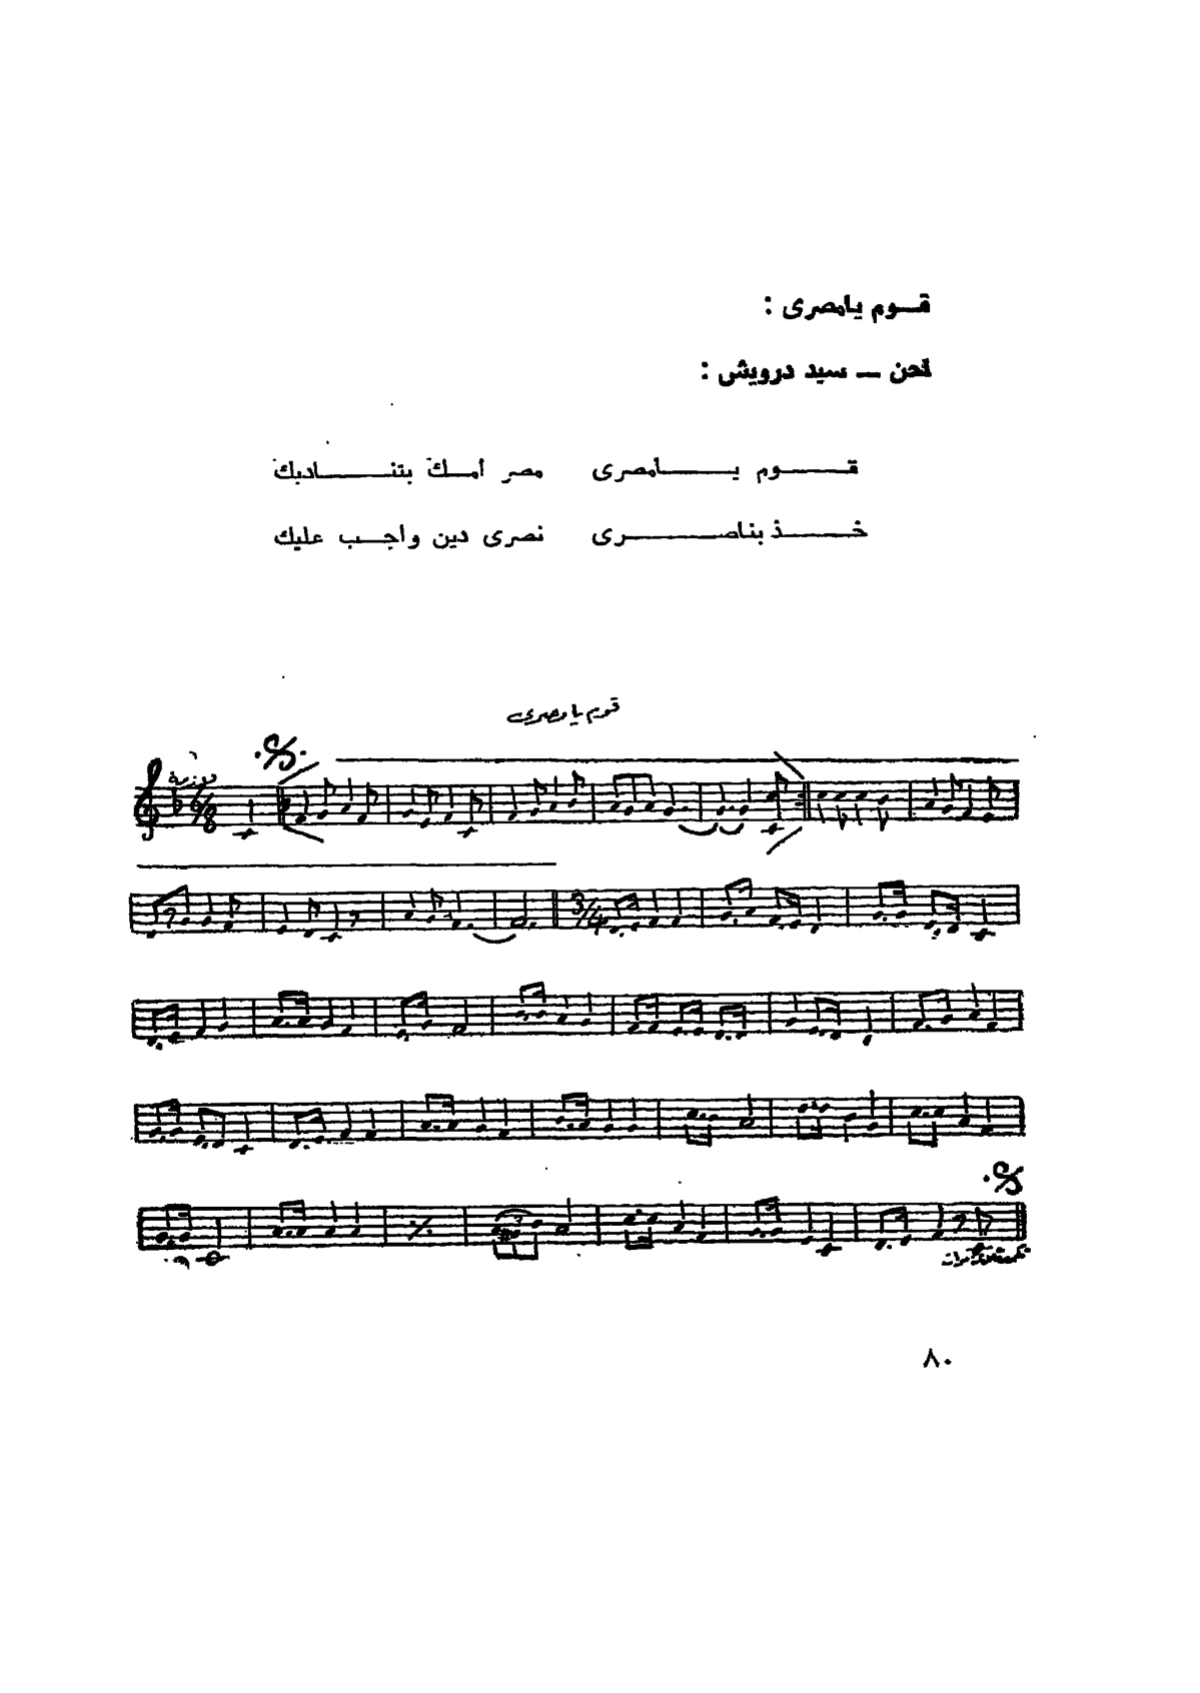 قــوم يامصرى :
لحن ــ سيد درويش :
قــــوم يــــامصرى مصر أمــك بتنــــاديك
خــــذ بناصــــرى نصرى دين واجــب عليك
قوم يا مصرى
6/8
3/4
٨٠